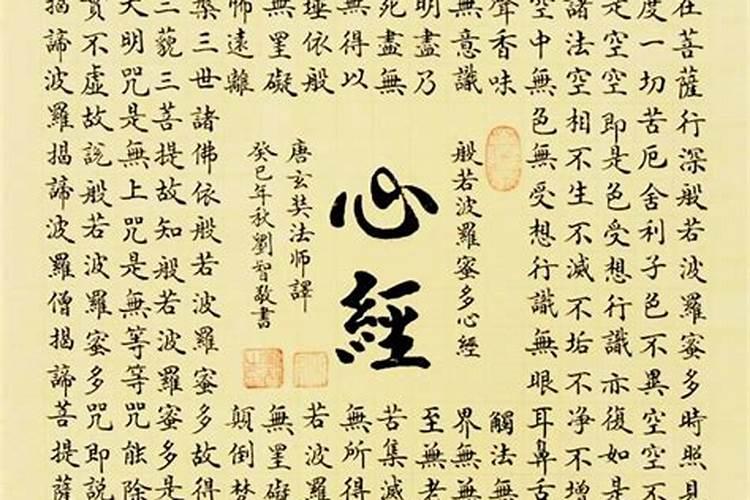 在菩薩行深般若波羅蜜多時照見
度一切苦厄舍利子色不異空空不
是空空即是色受想行識亦復如是
諸法空相不生不滅不垢不淨不增
空中無色無受想行識無眼耳鼻舌
聲香味
觸法無
無意識
界無無
明盡乃
至無老
死盡無
苦集滅
無得以
無所得
埵依般
若波羅
無罣礙
無罣礙
怖遠離
顛倒梦
般若波羅蜜多心經
心經
唐玄奘法師譯
癸巳年秋劉智敬書
槃三世諸佛依般若波羅蜜多故得
三藐三菩提故知般若波羅蜜多是
大明咒是無上咒是無等等咒能除
實不虛故說般若波羅蜜多咒即説
揭諦波羅揭諦波羅僧揭諦菩提薩